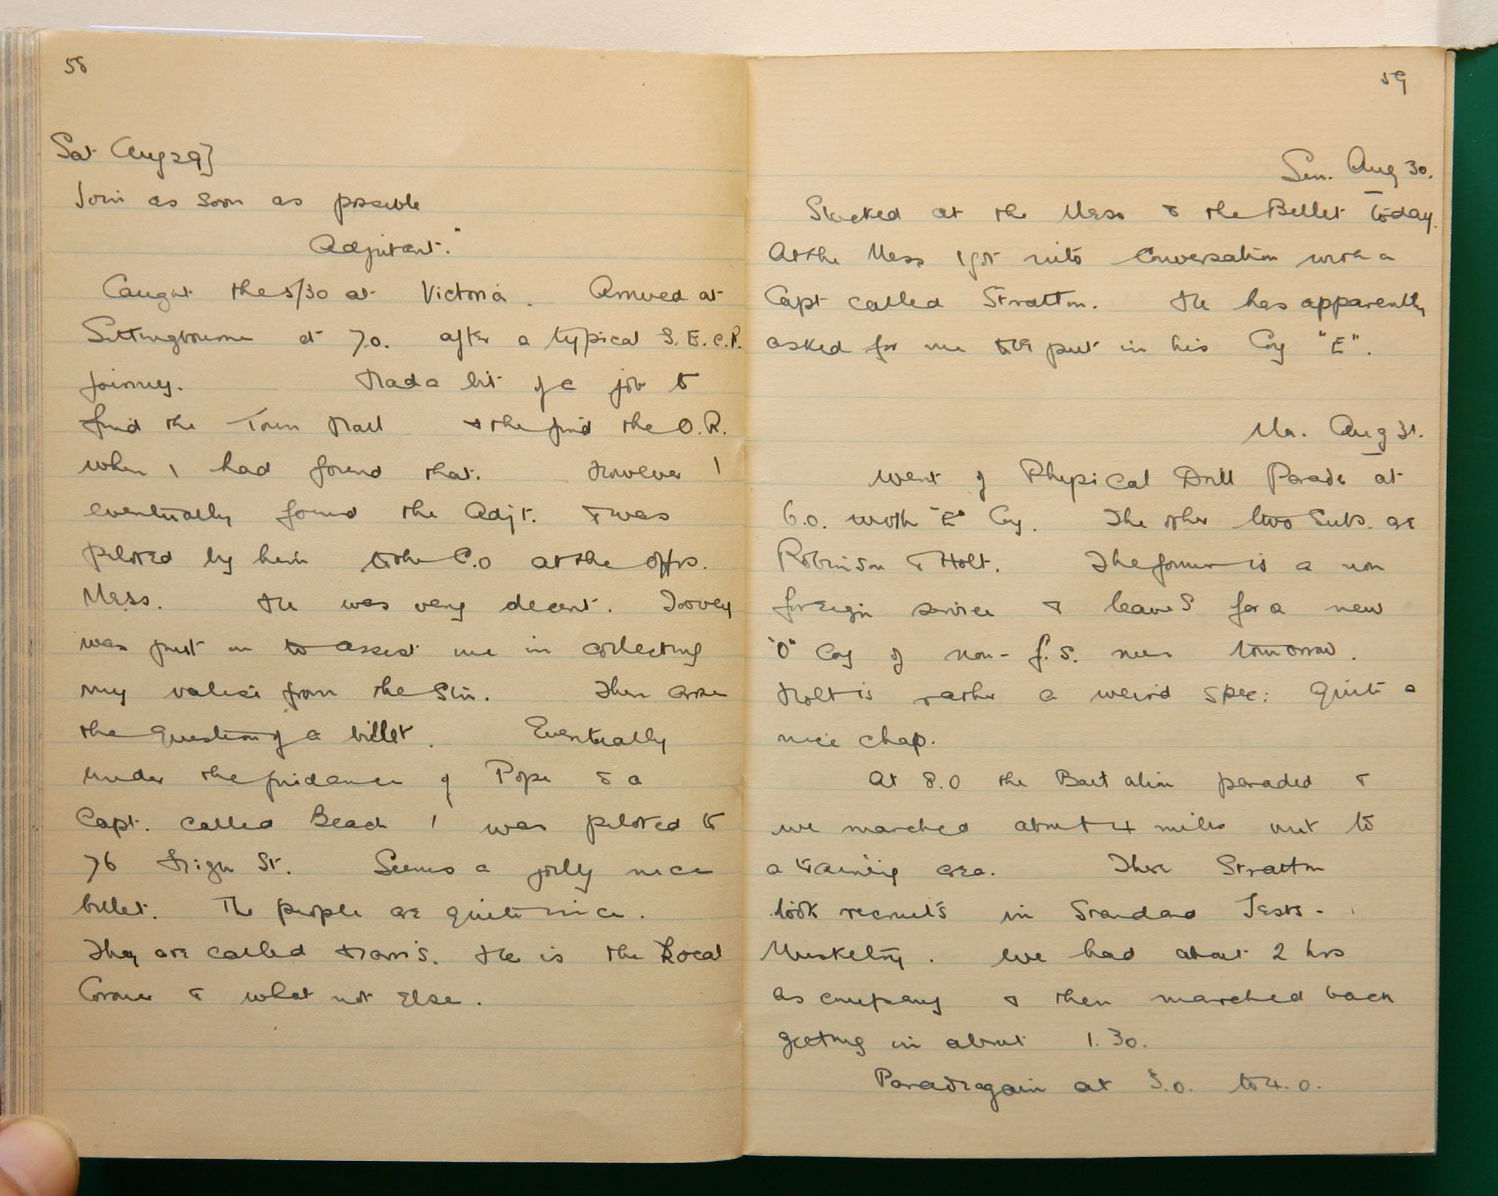 58
Sat Aug 29}
Join as soon as possible
Adjutant."
Caught the 5/30 at Victoria. Arrived at
Sittingbourne at 7.0. after a typical S.E.C.R.
journey. Had a bit of a job to
find the Town Hall & the find the O.R.
when I had found that. However I
eventually found the Adjt. & was
piloted by him to the C.O at the offrs.
Mess. He was very decent. Tovey
was put on to assist me in collecting
my valise from the Stn. Then arose
the question of a billet. Eventually
under the guidance of Pope & a
Capt. called Beach I was piloted to
76 High St. Seems a jolly nice
billet. The people are quite nice.
They are called Harris. He is the Local
Coroner & what not else.
59
Sun. Aug 30.
Slacked at the Mess & the Billet today.
At the Mess I got into conversation with a
Capt called Stratton. He has apparently
asked for me to be put in his Coy "E".
Mn. Aug 31.
Went of Physical Drill Parade at
6.0. with "E" Coy. The other two Subs. are
Robinson & Holt. The former is a non
foreign service & leaves for a new
"O" Coy of non-f.s. men tomorrow.
Holt is rather a weird spec: quite a
nice chap.
At 8.0 the Battalion paraded &
we marched about 4 miles out to
a training area. There Stratton
took recruits in Standard Tests-
Musketry. We had about 2 hrs
as company & then marched back
getting in about 1.30.
Parade again at 3.0. to 4.0.